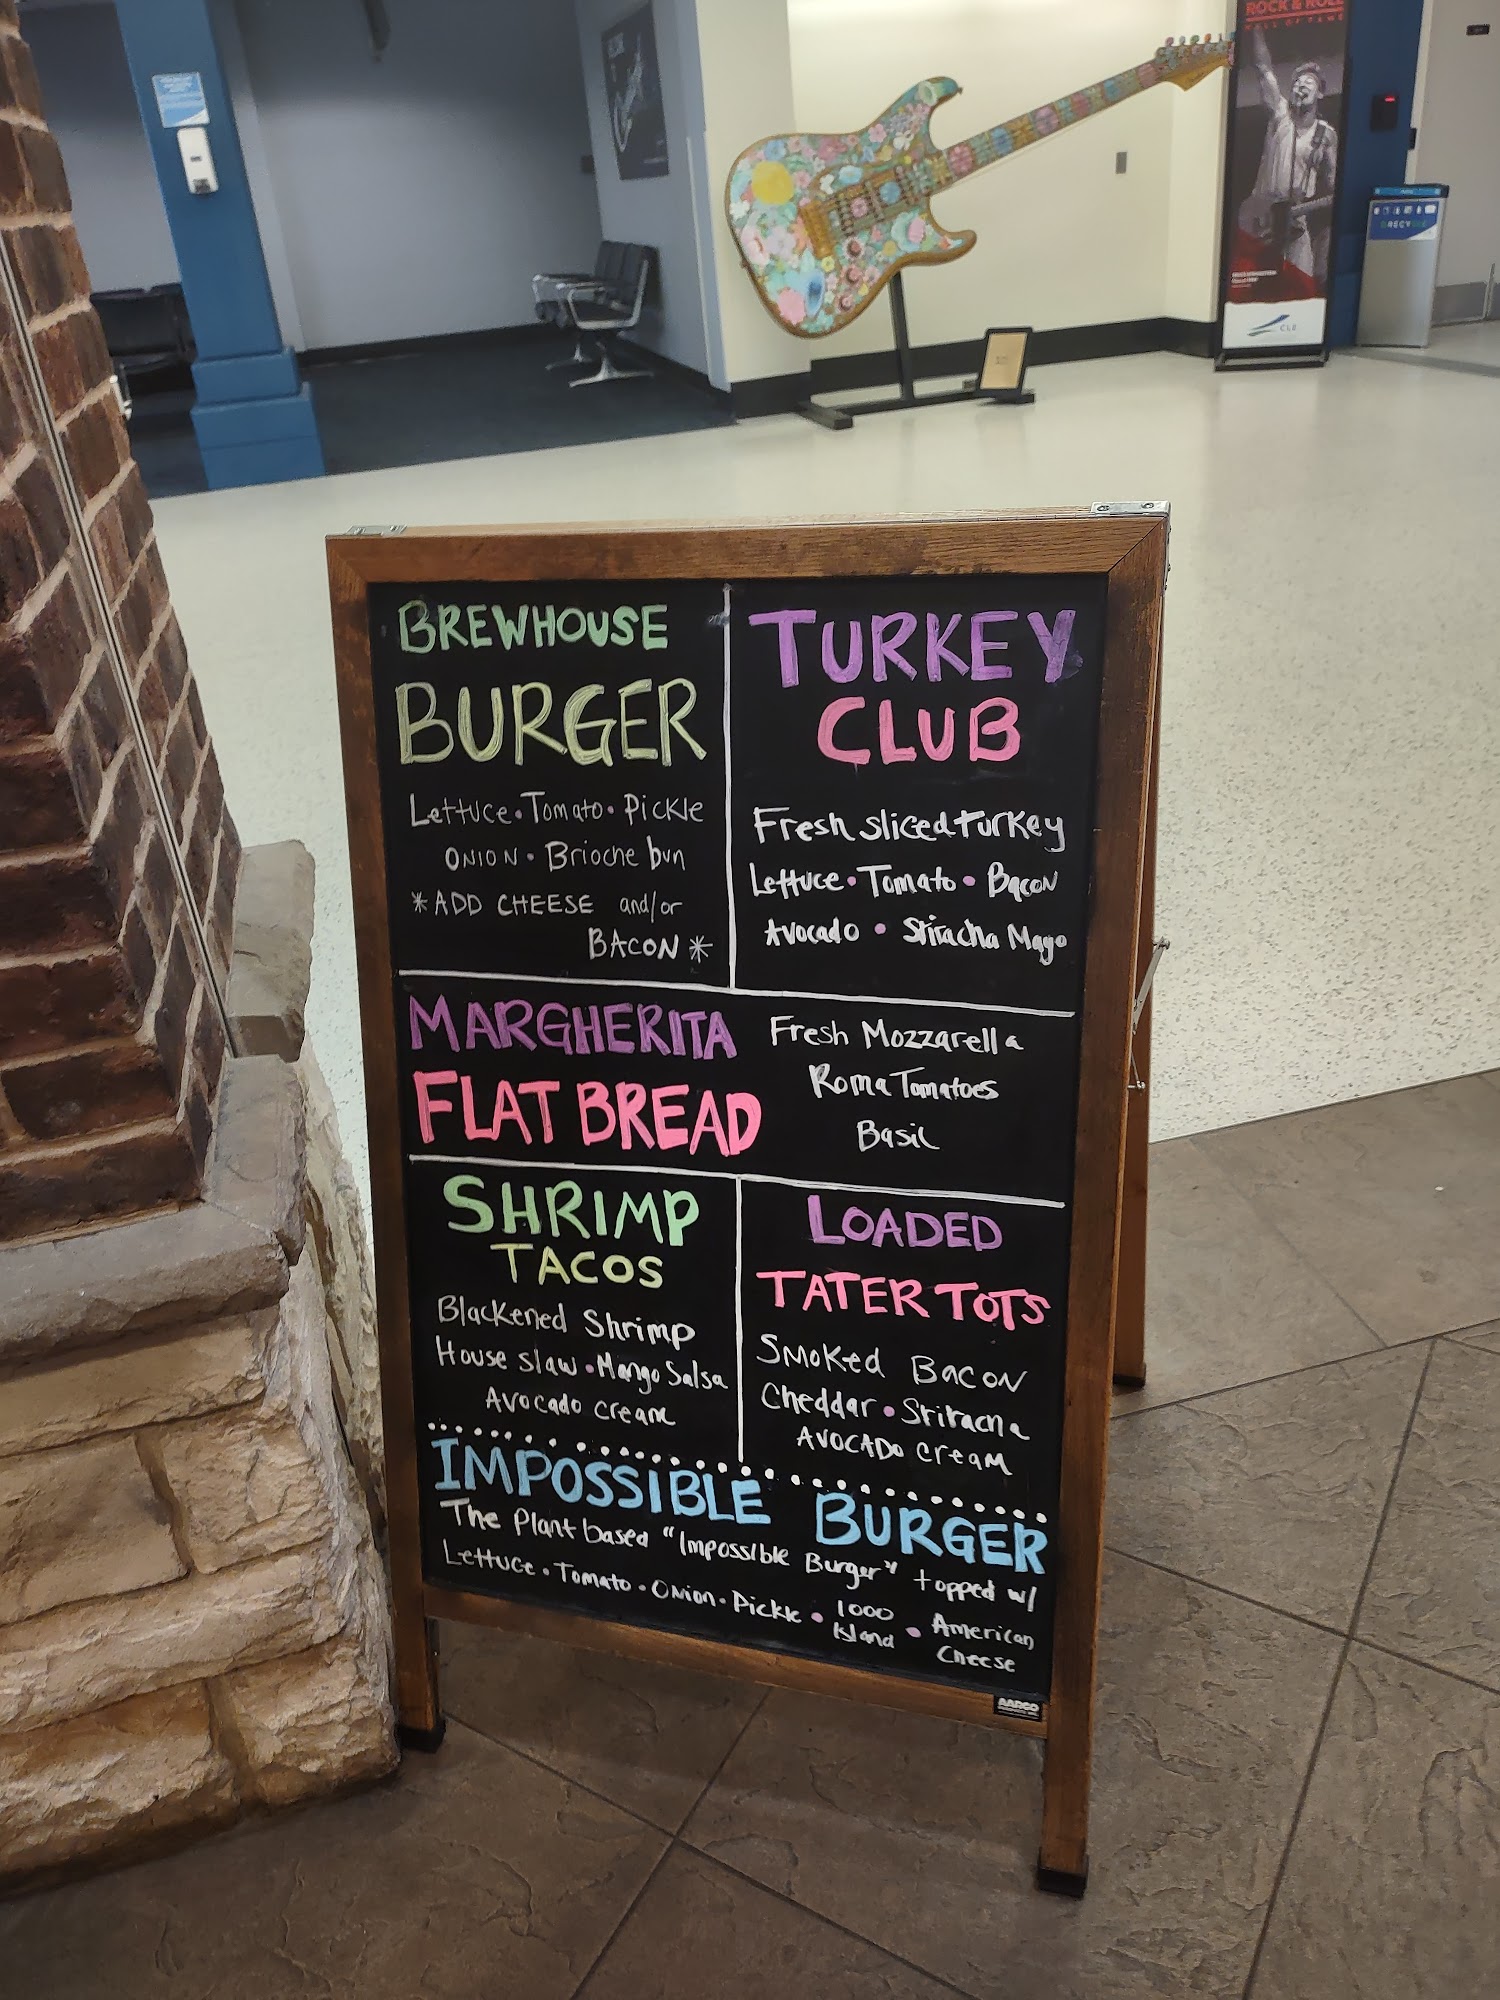 ROCK & ROLL
HALL OF FAME
CLE
BREWHOUSE
BURGER
Lettuce • Tomato • Pickle
ONION • Brioche bun
*ADD CHEESE and/or
BACON*
TURKEY
CLUB
Fresh sliced turkey
Lettuce • Tomato • Bacon
Avocado • Sriracha Mayo
MARGHERITA
FLAT BREAD
Fresh Mozzarella
Roma Tomatoes
Basil
SHRIMP
TACOS
Blackened Shrimp
House slaw • Mango Salsa
Avocado cream
LOADED
TATER TOTS
SMOKED BACON
Cheddar • Sriracha
AVOCADO CREAM
IMPOSSIBLE BURGER
The Plant based "Impossible Burger" topped w/
Lettuce • Tomato • Onion • Pickle • 1000 Island • American Cheese
AARCO